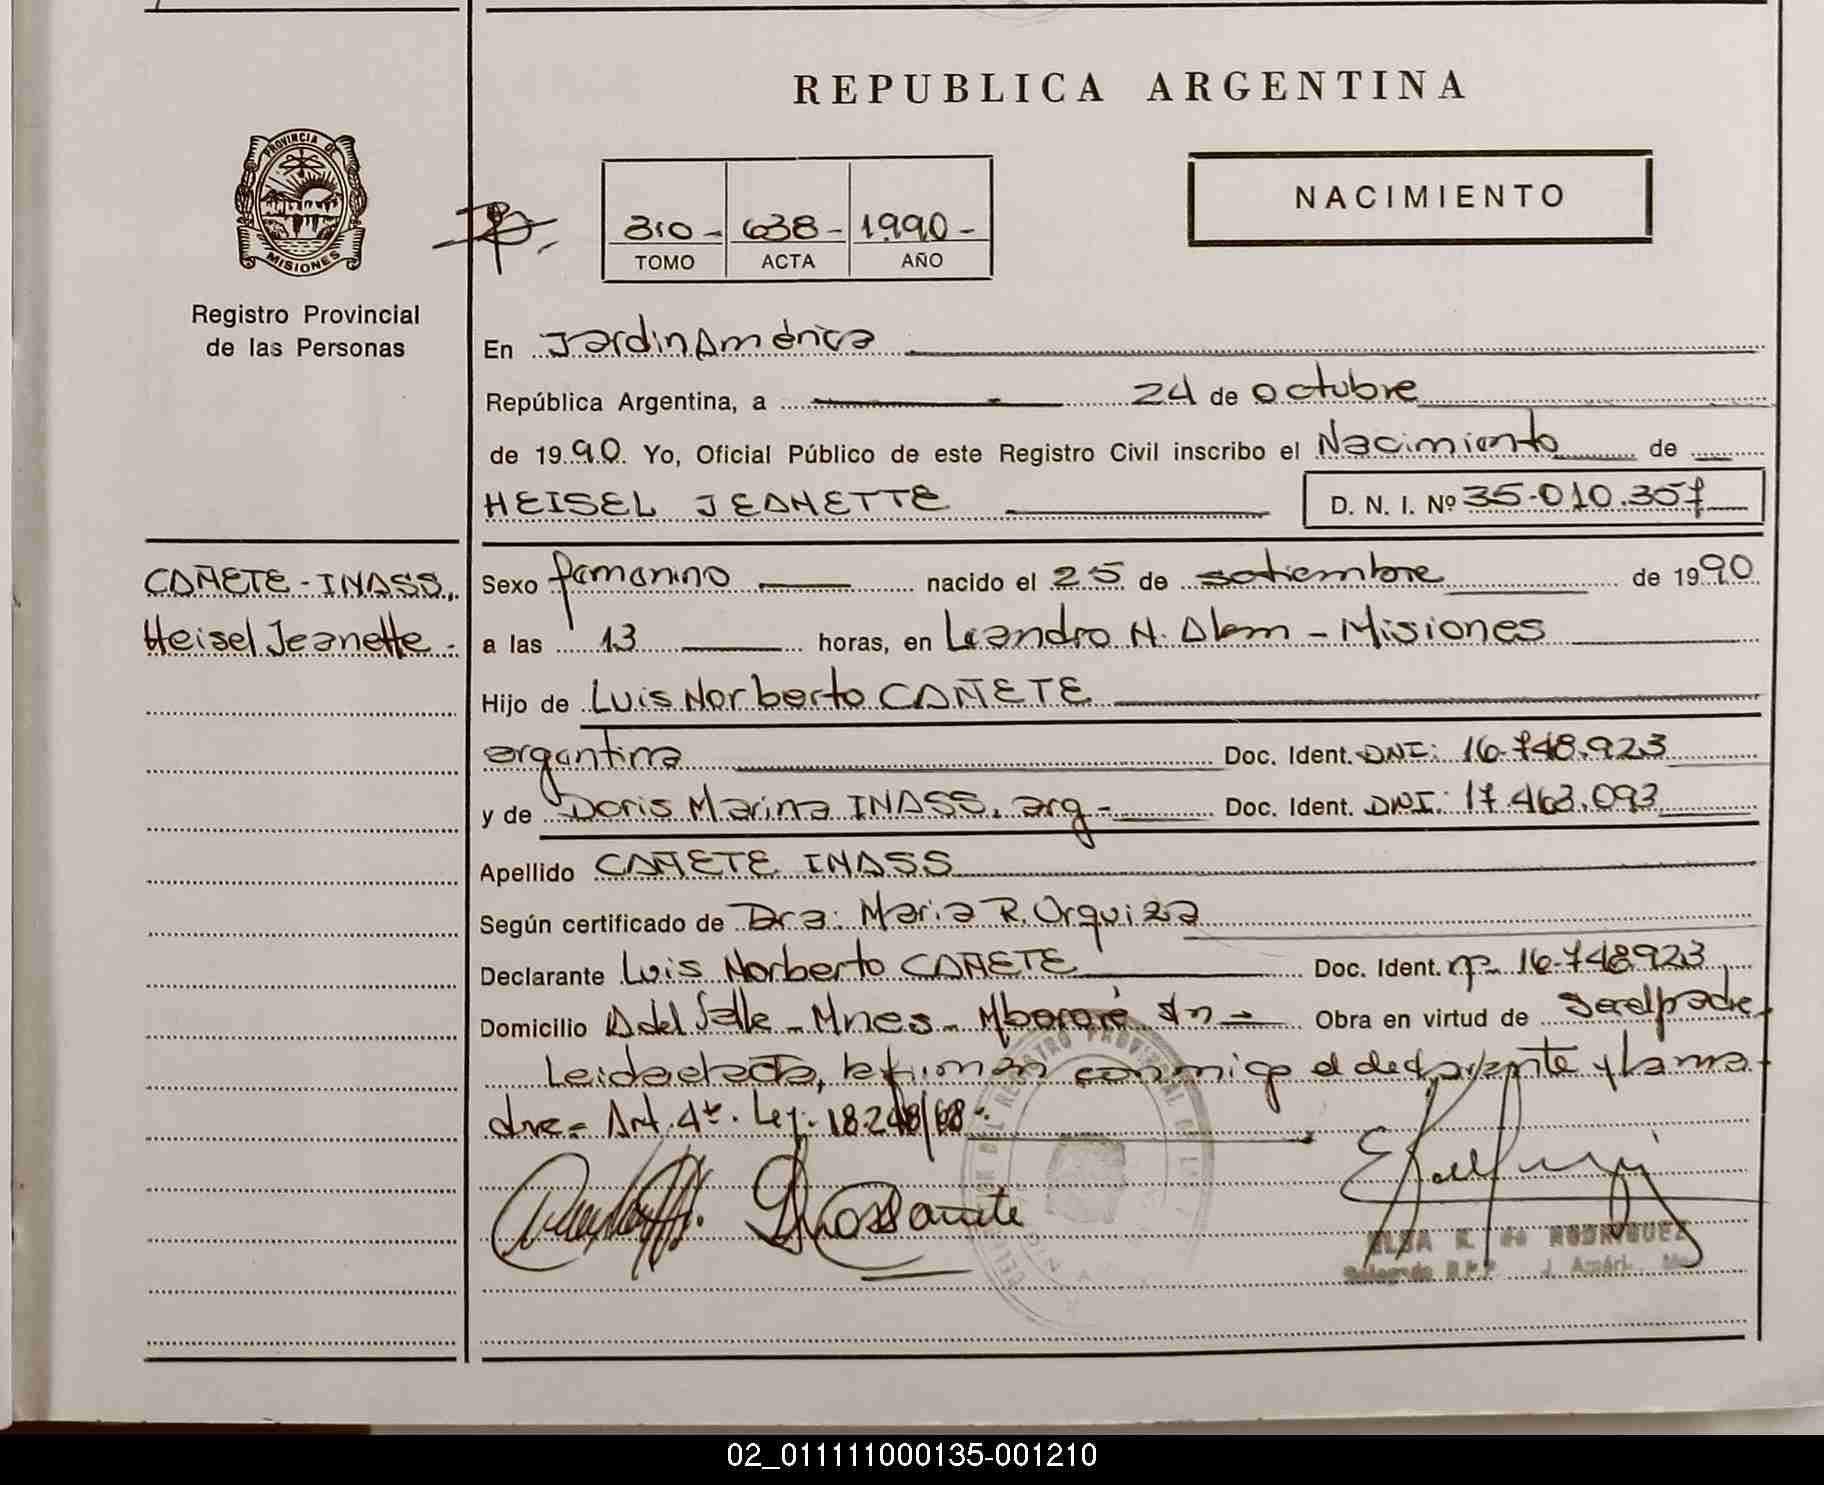 REPUBLICA ARGENTINA
PROVINCIA DE
MISIONES
Registro Provincial
de las Personas
310- 638- 1990-
TOMO ACTA AÑO
NACIMIENTO
En Jardin América
República Argentina, a 24 de octubre
de 1990. Yo, Oficial Público de este Registro Civil inscribo el Nacimiento de
HEISEL JEANETTE D. N. I. Nº 35.010.357
CAÑETE-INASS,
Heisel Jeanette.-
Sexo femenino nacido el 25 de setiembre de 1990
a las 13 horas, en Leandro N. Alem - Misiones
Hijo de Luis Norberto CAÑETE
argentina Doc. Ident. DNI: 16.748.923
y de Doris Marina INASS. arg- Doc. Ident. DNI: 17.463.093
Apellido CAÑETE INASS
Según certificado de Dra: Maria R. Urquiza
Declarante Luis Norberto CAÑETE Doc. Ident. nº 16.748923
Domicilio A del Valle - Mnes - Mbororé s/n - Obra en virtud de Ser el padre
Leida el acta, la firman conmigo el declarante y la ma-
dre= Art. 4º. Ley. 18.248/68.-
ELSA K. de RODRIGUEZ
Delegada R.P.P. J. Améri. Ms
02_011111000135-001210